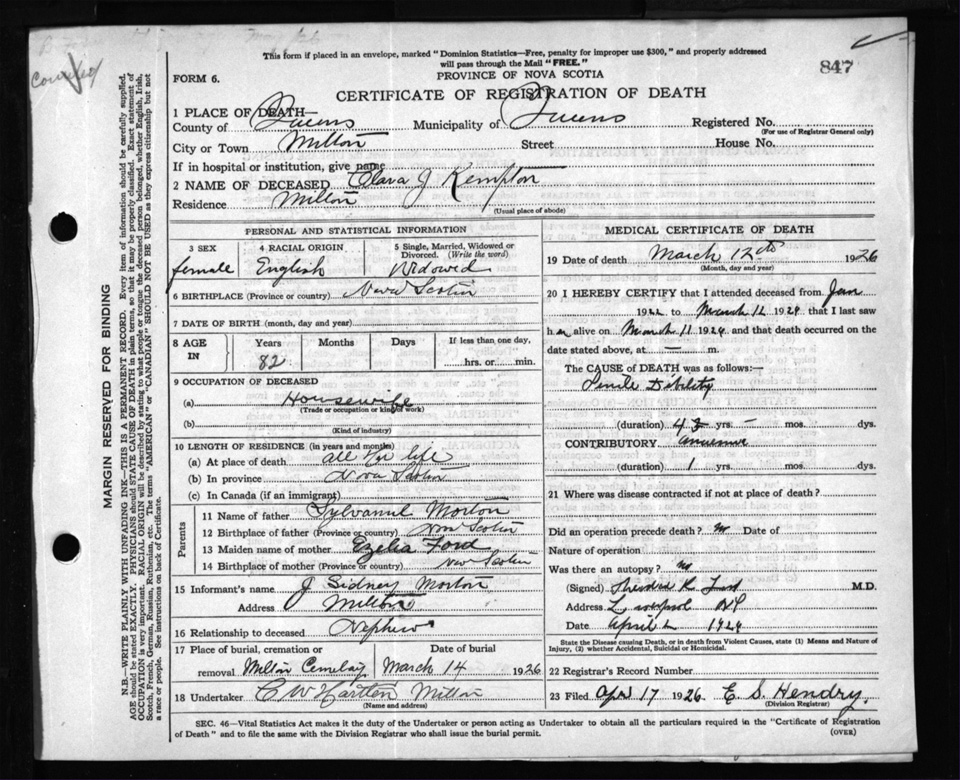 This form if placed in an envelope, marked "Dominion Statistics—Free, penalty for improper use $300," and properly addressed
will pass through the Mail "FREE."
847
Correctly
FORM 6.
PROVINCE OF NOVA SCOTIA
CERTIFICATE OF REGISTRATION OF DEATH
1 PLACE OF DEATH—
County of Queens Municipality of Queens Registered No.
(For use of Registrar General only)
City or Town Milton Street House No.
If in hospital or institution, give name
2 NAME OF DECEASED Clara J Kempton
Residence Milton
(Usual place of abode)
MARGIN RESERVED FOR BINDING
N.B.—WRITE PLAINLY WITH UNFADING INK—THIS IS A PERMANENT RECORD. Every item of information should be carefully supplied.
AGE should be stated EXACTLY. PHYSICIANS should STATE CAUSE OF DEATH in plain terms, so that it may be properly classified. Exact statement of
OCCUPATION is very important. RACIAL ORIGIN will be described by stating to what people or tongue the deceased person belonged, whether English, Irish,
Scotch, French, German, Russian, Ruthenian, etc. The terms "AMERICAN" or "CANADIAN" SHOULD NOT BE USED as they express citizenship but not
a race or people. See instructions on back of Certificate.
PERSONAL AND STATISTICAL INFORMATION
3 SEX 4 RACIAL ORIGIN 5 Single, Married, Widowed or
Divorced. (Write the word)
female English Widowed
6 BIRTHPLACE (Province or country) Nova Scotia
7 DATE OF BIRTH (month, day and year)
8 AGE IN Years Months Days If less than one day,
82 hrs. or min.
9 OCCUPATION OF DECEASED
(a) Housewife
(Trade or occupation or kind of work)
(b)
(Kind of industry)
10 LENGTH OF RESIDENCE (in years and months)
(a) At place of death all her life
(b) In province Nova Scotia
(c) In Canada (if an immigrant)
Parents
11 Name of father Sylvanus Morton
12 Birthplace of father (Province or country) Nova Scotia
13 Maiden name of mother Ezelia Ford
14 Birthplace of mother (Province or country) Nova Scotia
15 Informant's name J Sidney Morton
Address Milton
16 Relationship to deceased Nephew
17 Place of burial, cremation or Date of burial
removal Milton Cemetery March 14 1926
18 Undertaker C W Harten Milton
(Name and address)
MEDICAL CERTIFICATE OF DEATH
19 Date of death March 12th 1926
(Month, day and year)
20 I HEREBY CERTIFY that I attended deceased from Jan
1922 to March 12 1926 that I last saw
her alive on March 11 1926 and that death occurred on the
date stated above, at — m.
The CAUSE of DEATH was as follows:—
Senile Debility
(duration) yrs. – mos. dys.
CONTRIBUTORY
(duration) 1 yrs. mos. dys.
21 Where was disease contracted if not at place of death?
Did an operation precede death? no Date of
Nature of operation
Was there an autopsy? no
(Signed) M.D.
Address Liverpool NS
Date April 2 1926
State the Disease causing Death, or in death from Violent Causes, state (1) Means and Nature of
Injury, (2) whether Accidental, Suicidal or Homicidal.
22 Registered Record Number
23 Filed Apr 17 1926 E. S. Hendry
(Division Registrar)
SEC. 46—Vital Statistics Act makes it the duty of the Undertaker or person acting as Undertaker to obtain all the particulars required in the "Certificate of Registration
of Death" and to file the same with the Division Registrar who shall issue the burial permit.
(OVER)